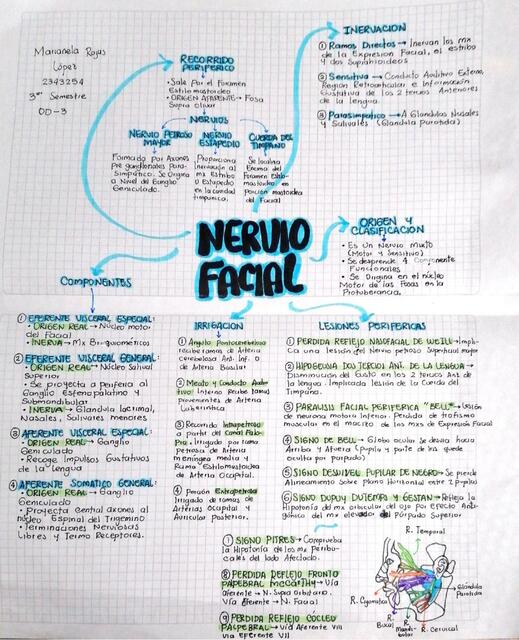 Marianela Rojas
López
2343254
3er Semestre
OD-3
RECORRIDO
PERIFERICO
• Sale por el Foramen
Estilomastoideo
• ORIGEN APARENTE → Fosa
Supra Olivar
NERVIOS
NERVIO PETROSO
MAYOR
Formado por Axones
preganglionales Para-
Simpatico. Se Origina
a Nivel del Ganglio
Geniculado.
NERVIO
ESTAPEDIO
Proporciona
Inervación al
mx Estribo
U Estapedio
en la cavidad
timpánica.
CUERDA DEL
TIMPANO
Se localiza
Encima del
Foramen Estilo-
mastoideo en
porción mastoidea
del Facial
INERVACION
① Ramos Directos → Inervan los mx
de la Expresión Facial, el estribo
y dos Suprahioideos
② Sensitiva → Conducto Auditivo Externo,
Región Retroarticular e Información
Gustativa de los 2 tercios Anteriores
de la lengua.
③ Parasimpatico → A Glandulas Nasales
y Salivales (Glandula Parotida)
NERVIO
FACIAL
ORIGEN Y
CLASIFICACION
• Es un Nervio Mixto
(Motor y Sensitivo)
• Se desprende 4 Componente
Funcionales
• Se Origina en el núcleo
Motor de las Fosas en la
Protuberancia.
COMPONENTES
① EFERENTE VISCERAL ESPECIAL:
• ORIGEN REAL → Núcleo motor
del Facial
• INERVA → Mx Branquioméricos
② EFERENTE VISCERAL GENERAL:
• ORIGEN REAL → Núcleo Salival
Superior
• Se proyecta a periferia al
Ganglio Esfenopalatino y
Submandibular
• INERVA → Glandula lacrimal,
Nasales, Salivales menores
③ AFERENTE VISCERAL ESPECIAL:
• ORIGEN REAL → Ganglio
Geniculado
• Recoge Impulsos Gustativos
de la lengua
④ AFERENTE SOMATICO GENERAL:
• ORIGEN REAL → Ganglio
Geniculado
• Proyecta central axones al
núcleo Espinal del Trigemino
• Terminaciones Nerviosas
Libres y Termo Receptores.
IRRIGACION
① Angulo Pontocerebeloso
recibe ramos de Arteria
Cerebelosa Ant. Inf. O
de Arteria Basilar
② Meato y Conducto Audi-
tivo Interno Recibe ramos
provenientes de Arteria
Laberintica
③ Recorrido Intrapetroso
a partir del Canal Falo-
pio, Irrigado por rama
petrosa de Arteria
meníngea media y
Rama Estilomastoidea
de Arteria Occipital.
④ Porción Extrapetrosa
Irrigado de ramas de
Arterias Occipital y
Auricular Posterior.
LESIONES PERIFERICAS
① PERDIDA REFLEJO NASOFACIAL DE WEILL → Impli-
ca una lesión del Nervio petroso Superficial mayor
② HIPOGEUSIA DOS TERCIOS ANT. DE LA LENGUA →
Disminución del Gusto en los 2 tercios Ant
de la lengua. Implicada lesión de la Cuerda del
Timpano.
③ PARALISIS FACIAL PERIFERICA "BELL" → Lesión
de neurona motora Inferior. Perdida de trofismo
muscular en la mayoria de los mxs de Expresión Facial
④ SIGNO DE BELL → Globo ocular se desvia hacia
Arriba y Afuera (Pupila y parte de iris quede
oculta por párpado)
⑤ SIGNO DESNIVEL PUPILAR DE NEGRO → Se pierde
Alineamiento Sobre Plano Horizontal entre 2 Pupilas
⑥ SIGNO DUPUY DUTEMPS Y CESTAN → Refleja la
Hipotonia del mx orbicular del ojo por Efecto Anta-
gónico del mx elevador del Párpado Superior
⑦ SIGNO PITRES → Comprueba
la Hipotonía de los mx Peribu-
cales del lado Afectado.
⑧ PERDIDA REFLEJO FRONTO
PALPEBRAL MCCARTHY → Vía
Aferente → N. Supra Orbitario.
Vía Aferente → N. Facial
⑨ PERDIDA REFLEJO COCLEO
PALPEBRAL → Vía Aferente VIII
Vía EFERENTE VII
R. Temporal
Glándula
Parotida
R. Cigomatica
R.
Bucal
R.
Mandi-
bular
R. Cervical